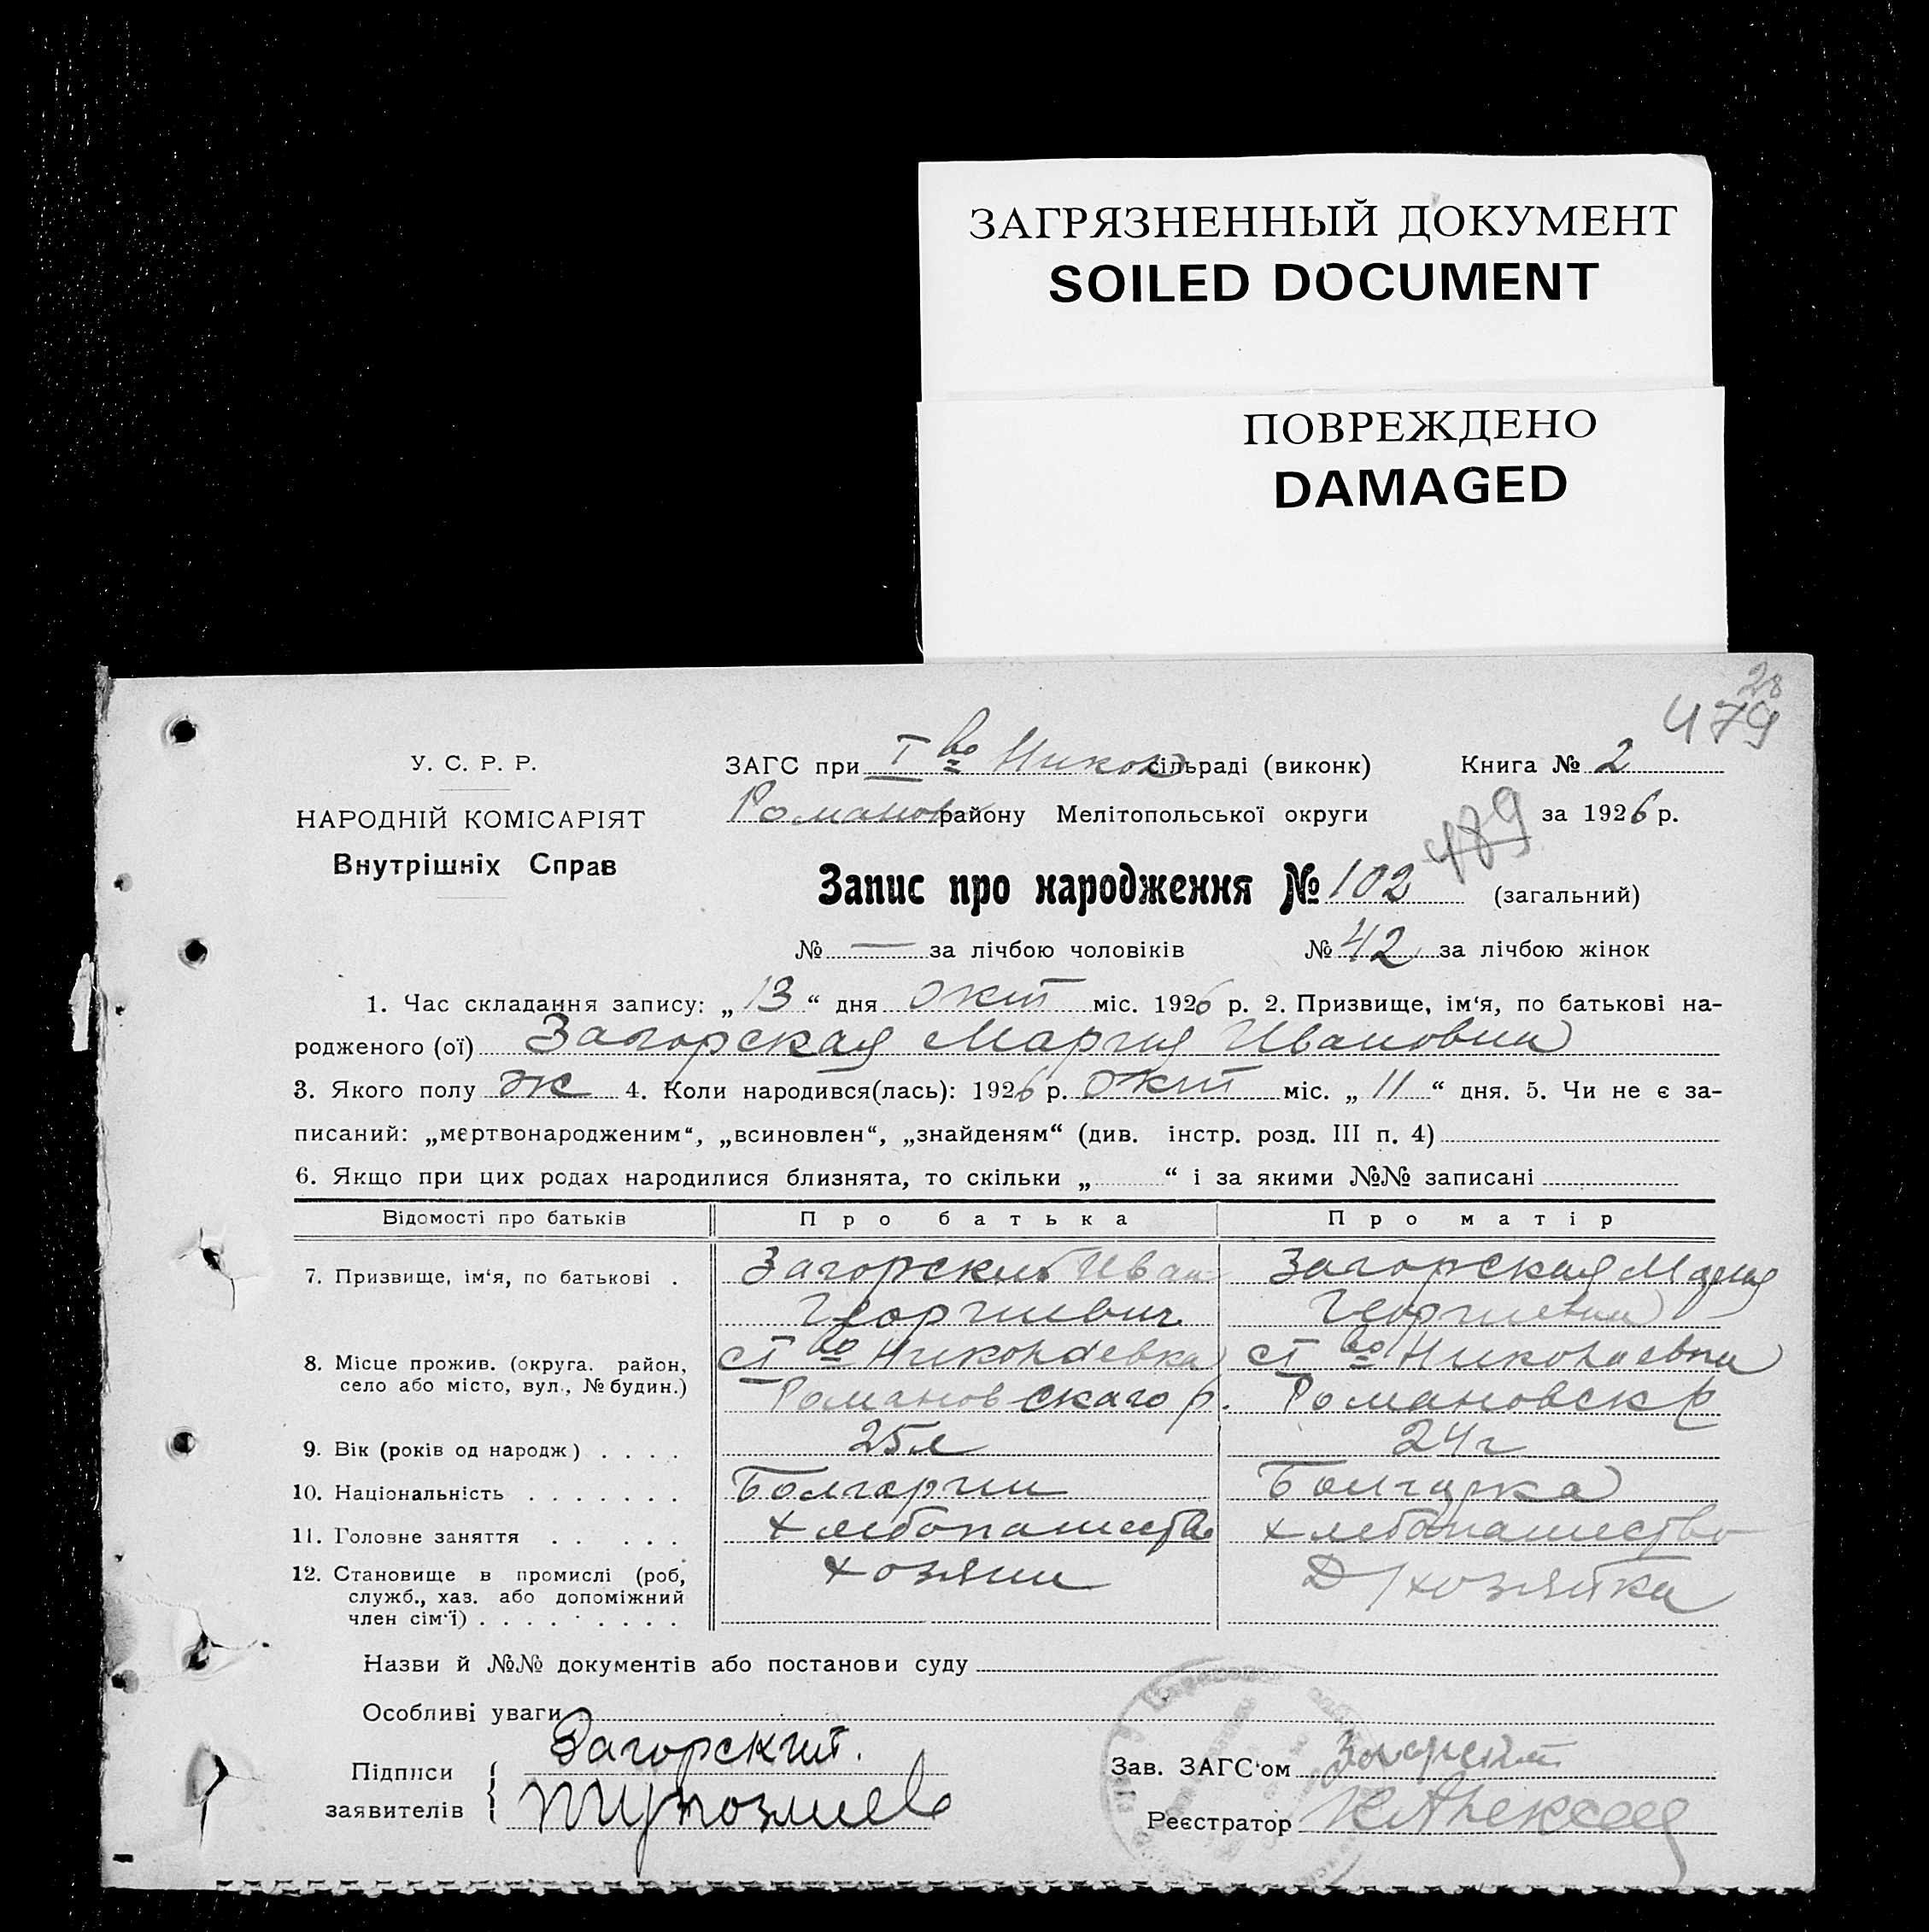 ЗАГРЯЗНЕННЫЙ ДОКУМЕНТ
SOILED DOCUMENT
ПОВРЕЖДЕНО
DAMAGED
28
479
У. С. Р. Р.
ЗАГС при I во Никол сільраді (виконк) Книга № 2
НАРОДНІЙ КОМІСАРІЯТ
Романов району Мелітопольської округи за 1926 р.
Внутрішніх Справ
479
Запис про народження № 102 (загальний)
№ — за лічбою чоловіків № 42 за лічбою жінок
1. Час складання запису: „ 13 “ дня окт міс. 1926 р. 2. Призвище, ім‘я, по батькові на-
родженого (ої) Загорская Мария Ивановна
3. Якого полу ж 4. Коли народився(лась): 1926 р. окт міс. „ 11 “ дня. 5. Чи не є за-
писаний: „мертвонародженим“, „всиновлен“, „знайденям“ (див. інстр. розд. III п. 4)
6. Якщо при цих родах народилися близнята, то скільки „ “ і за якими №№ записані
Відомості про батьків Про батька Про матір
7. Призвище, ім‘я, по батькові . Загорский Иван Загорская Мария
Георгиевич Георгиевна
8. Місце прожив. (округа. район, ст во Николаевка ст во Николаевки
село або місто, вул., № будин.) Романовскаго р. Романовск р
9. Вік (років од народж) . . . . 25 л 24 г
10. Національність . . . . . . . Болгарин Болгарка
11. Головне заняття . . . . . Хлебопашество хлебопашество
12. Становище в промислі (роб, хозяин Д/хозяйка
служб., хаз. або допоміжний
член сім‘ї) . . . . . . . . .
Назви й №№ документів або постанови суду
Особливі уваги
Підписи Загорский.
заявителів
Зав. ЗАГС‘ом Загорский
Реєстратор